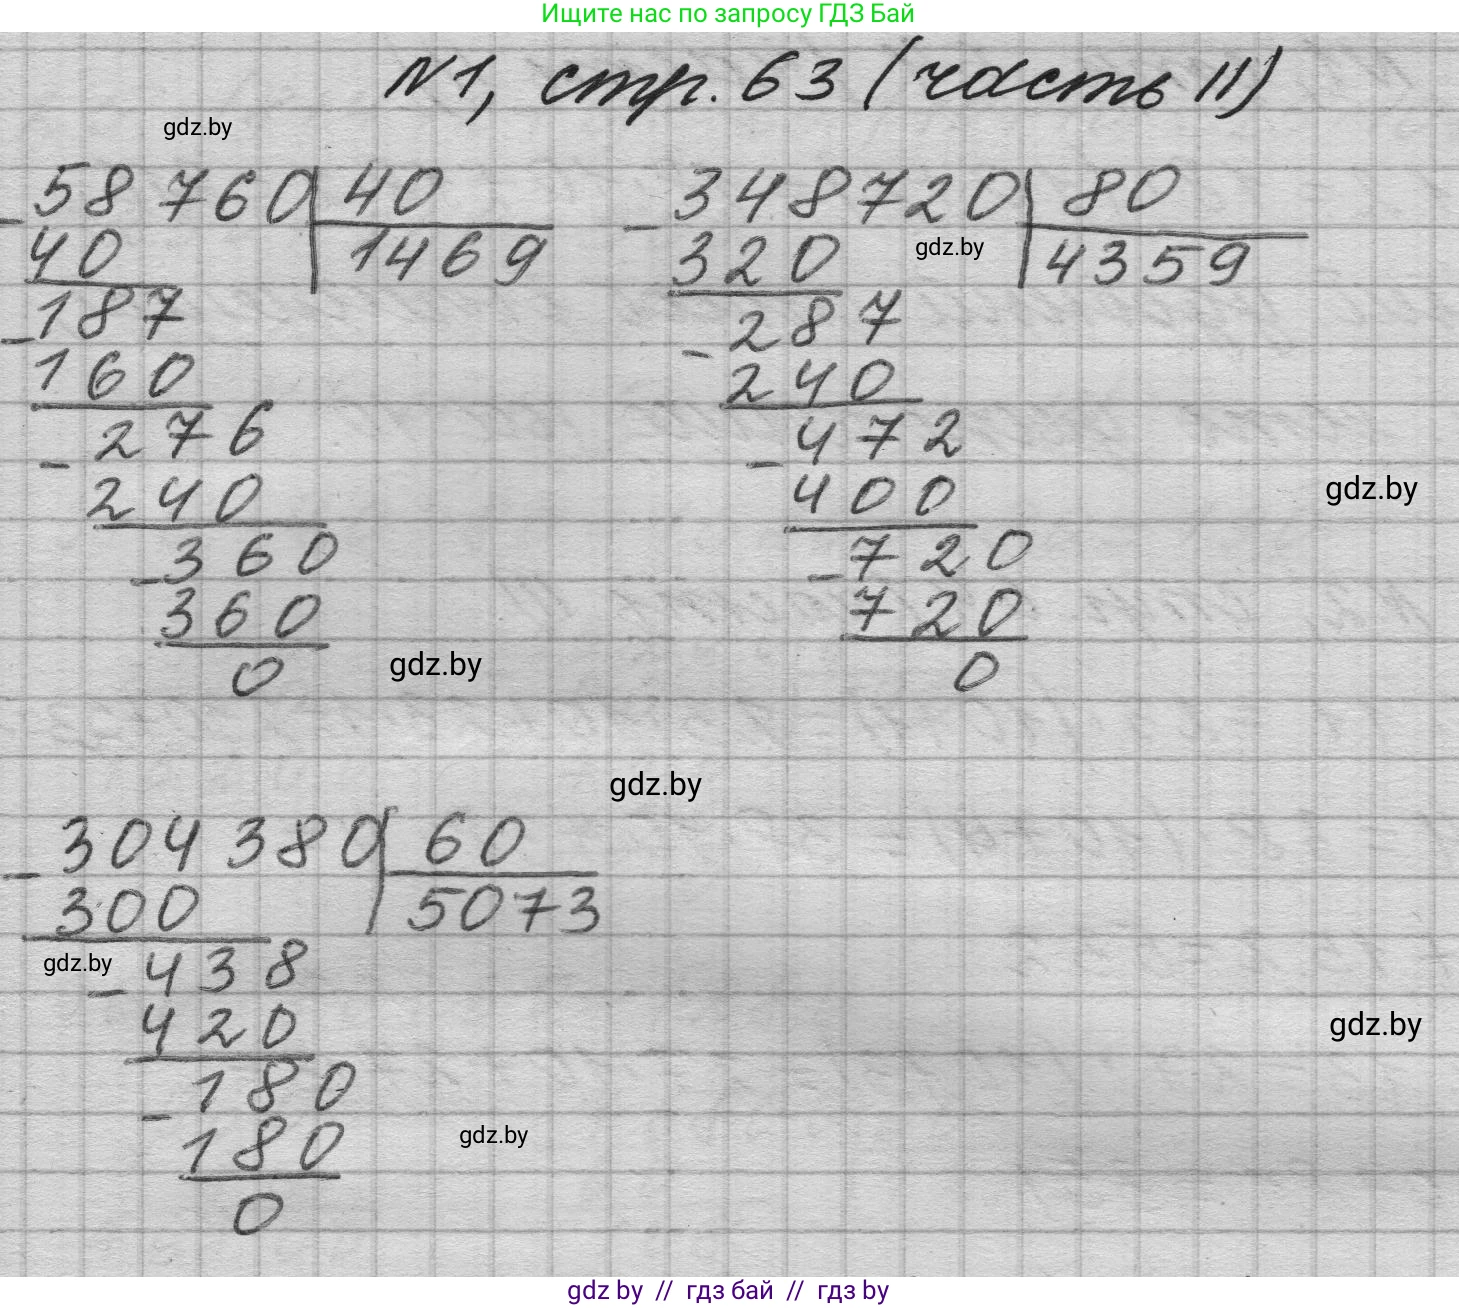 Ищите нас по запросу ГДЗ Бай
N1, стр. 63 (часть II)
gdz.by
58760 | 40
- 40 | 1469
187
- 160
276
- 240
360
- 360
0
348720 | 80
- 320 | 4359
gdz.by
287
- 240
472
- 400
720
- 720
0
gdz.by
gdz.by
gdz.by
304380 | 60
- 300 | 5073
gdz.by
438
- 420
180
- 180
0
gdz.by
gdz.by
gdz by // гдз бай // гдз by